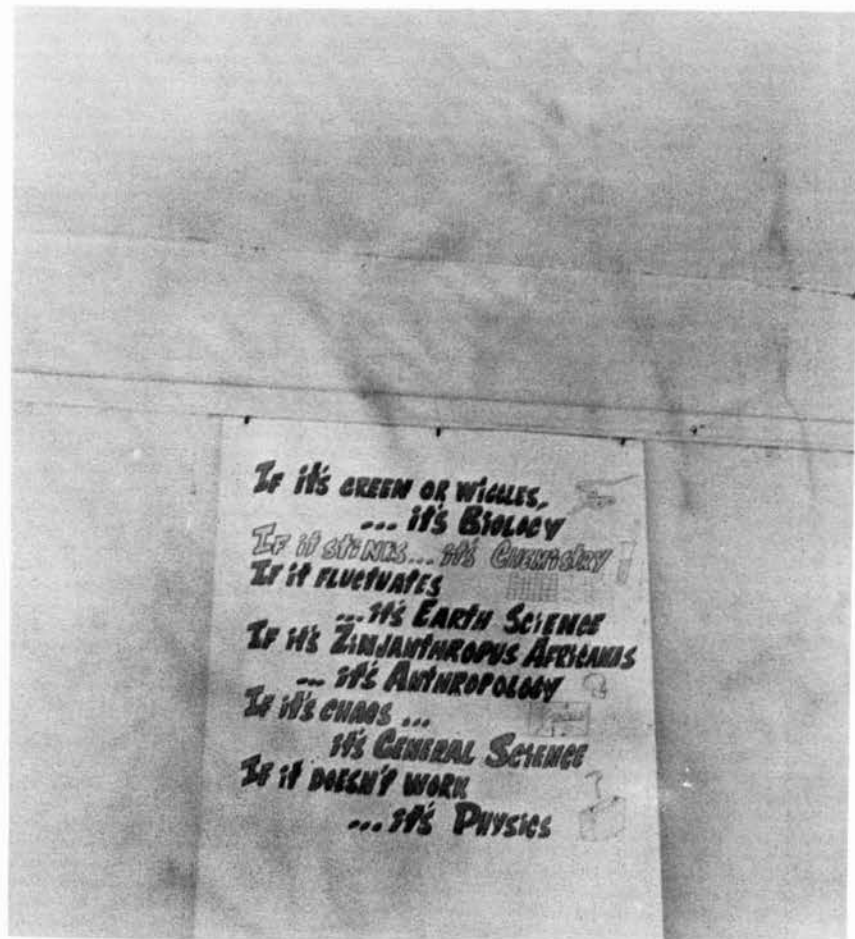 If it's green or wiggles,
... it's Biology
If it stinks... it's Chemistry
If it fluctuates
... it's Earth Science
If it's Zinjanthropus Africanus
... it's Anthropology
If it's chaos ...
it's General Science
If it doesn't work
... it's Physics